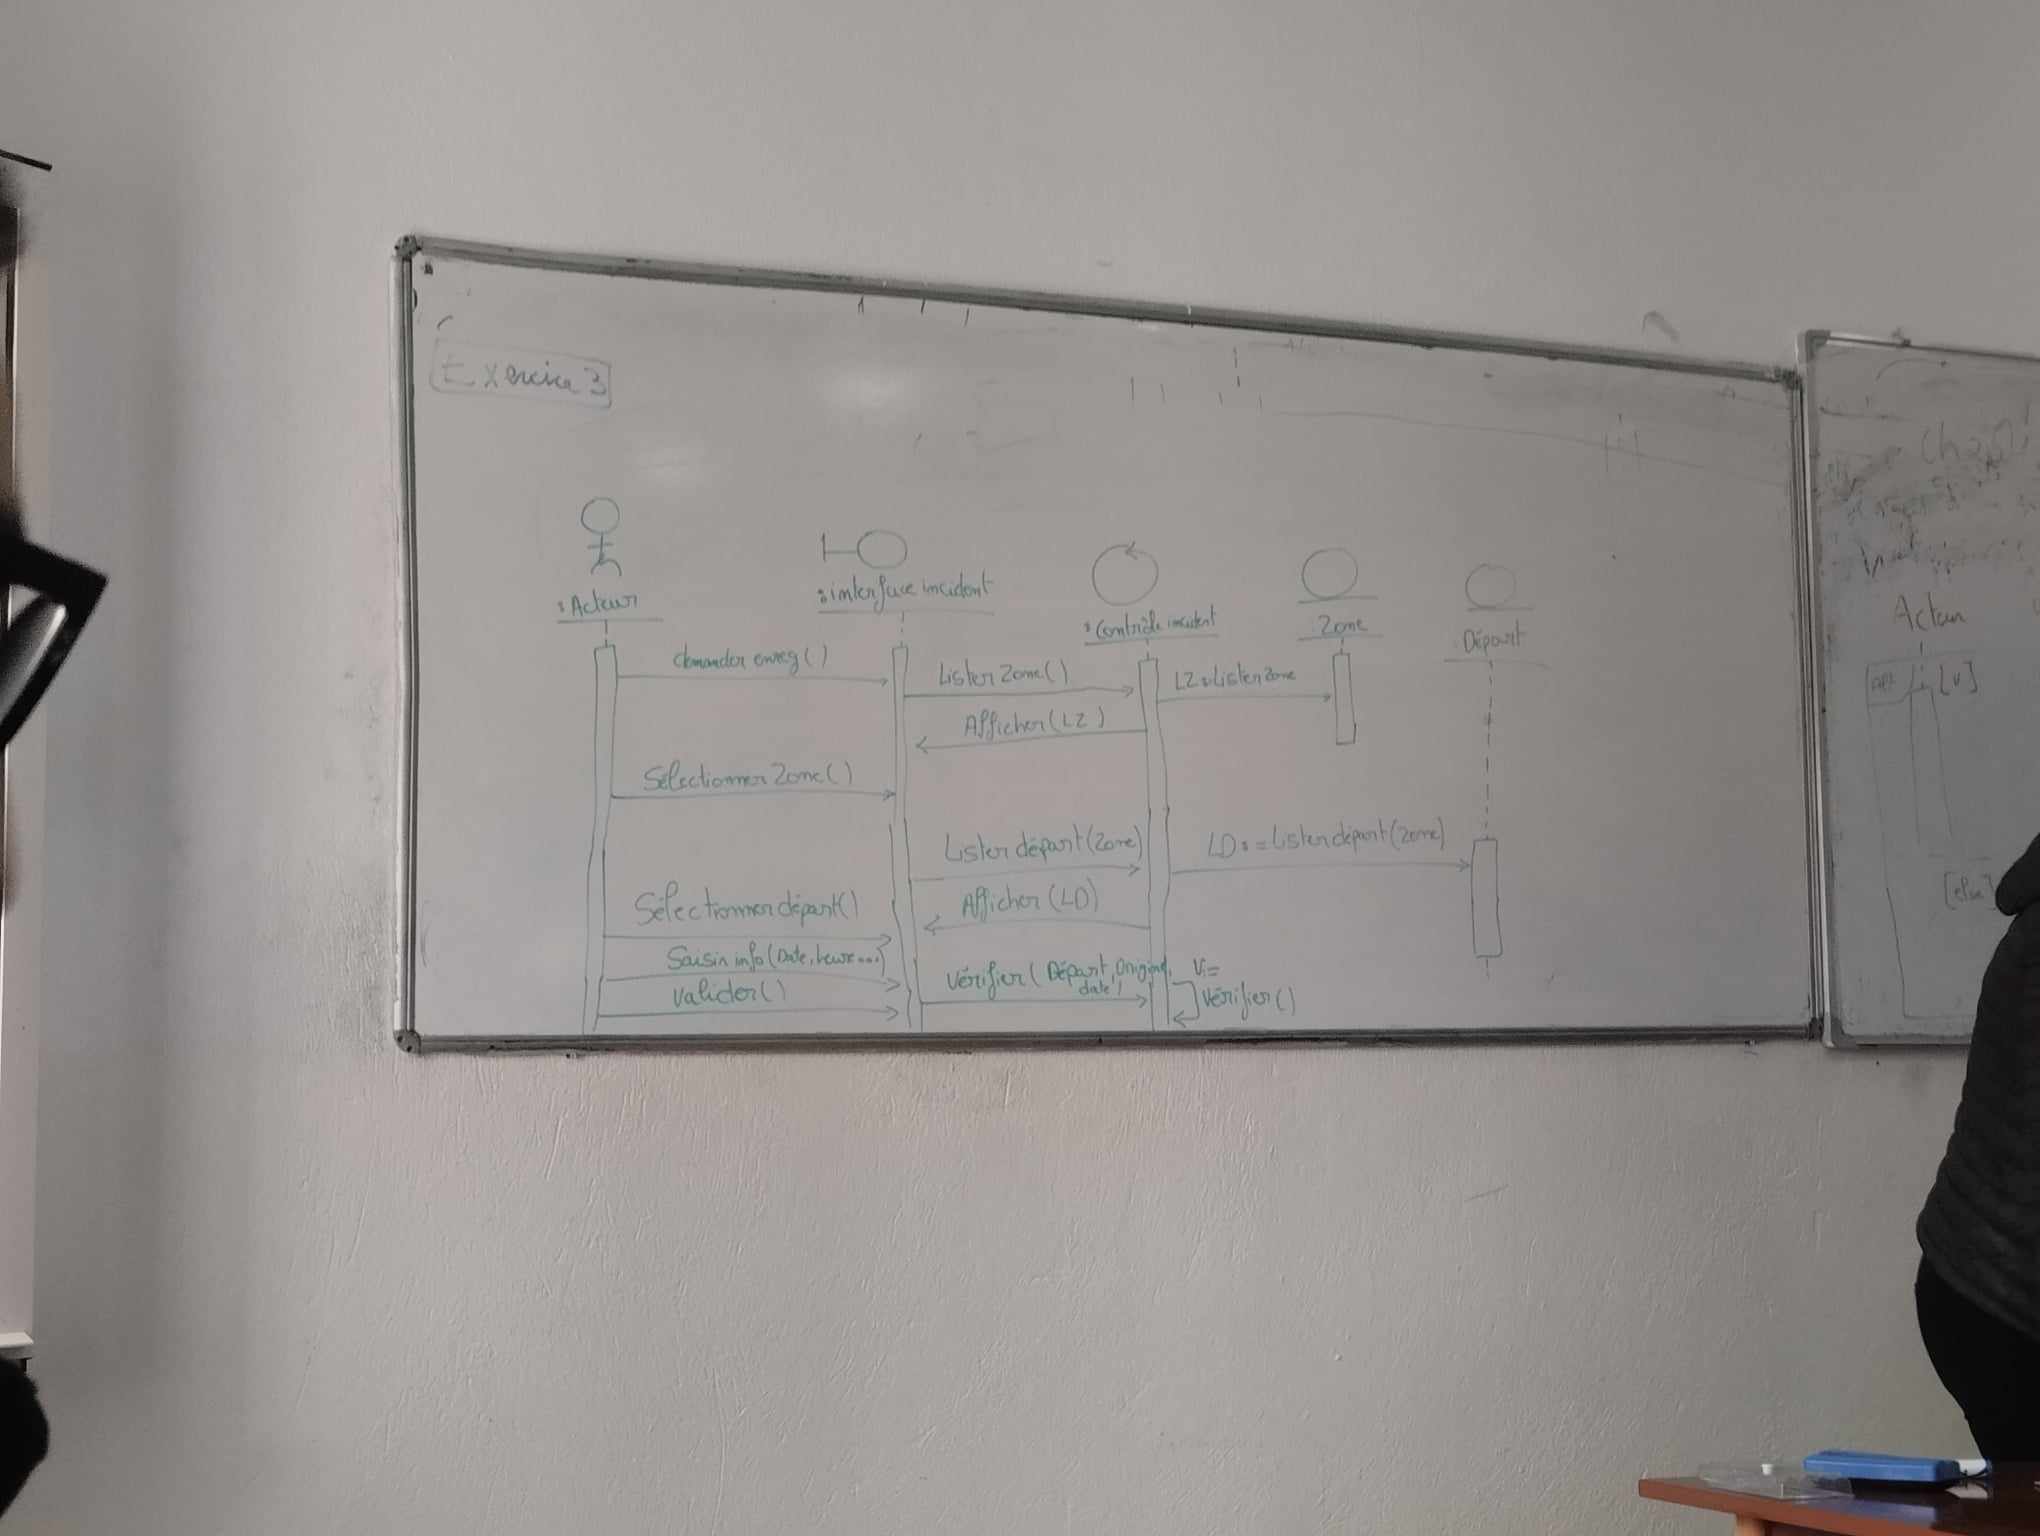 Exercice 3
:Acteur
:interface incident
:Contrôle incident
Zone
Départ
demander enreg()
Lister Zone()
LZ:=Lister Zone
Afficher (LZ)
Sélectionner Zone()
Lister départ (Zone)
LD:=Lister départ (Zone)
Sélectionner départ()
Afficher (LD)
Saisir info (Date, heure...)
Vérifier (Départ, Origine,
date)
V:=
Vérifier ()
Valider ()
Acteur
[V]
[else]